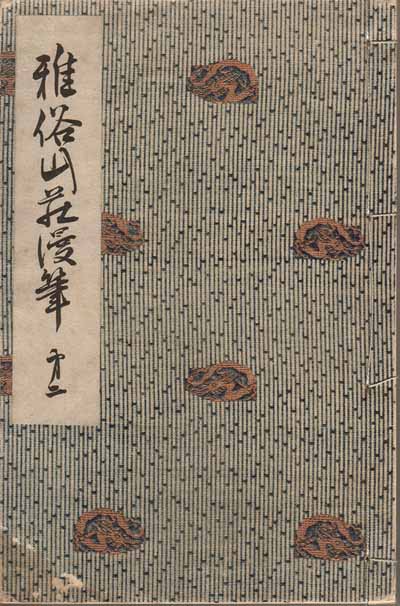 雅俗山荘漫筆 第二